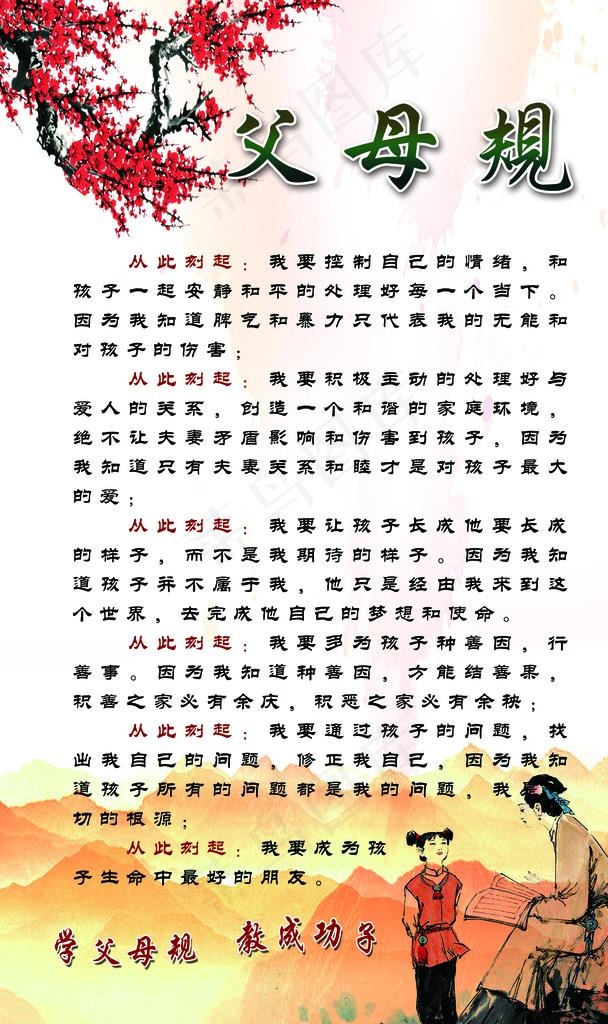 父母规
从此刻起：我要控制自己的情绪，和
孩子一起安静和平的处理好每一个当下。
因为我知道脾气和暴力只代表我的无能和
对孩子的伤害；
从此刻起：我要积极主动的处理好与
爱人的关系，创造一个和谐的家庭环境，
绝不让夫妻矛盾影响和伤害到孩子，因为
我知道只有夫妻关系和睦才是对孩子最大
的爱；
从此刻起：我要让孩子长成他要长成
的样子，而不是我期待的样子。因为我知
道孩子并不属于我，他只是经由我来到这
个世界，去完成他自己的梦想和使命。
从此刻起：我要多为孩子种善因，行
善事。因为我知道种善因，方能结善果，
积善之家必有余庆，积恶之家必有余秧；
从此刻起：我要通过孩子的问题，找
出我自己的问题，修正我自己，因为我知
道孩子所有的问题都是我的问题，我
切的根源；
从此刻起：我要成为孩
子生命中最好的朋友。
学父母规 教成功子